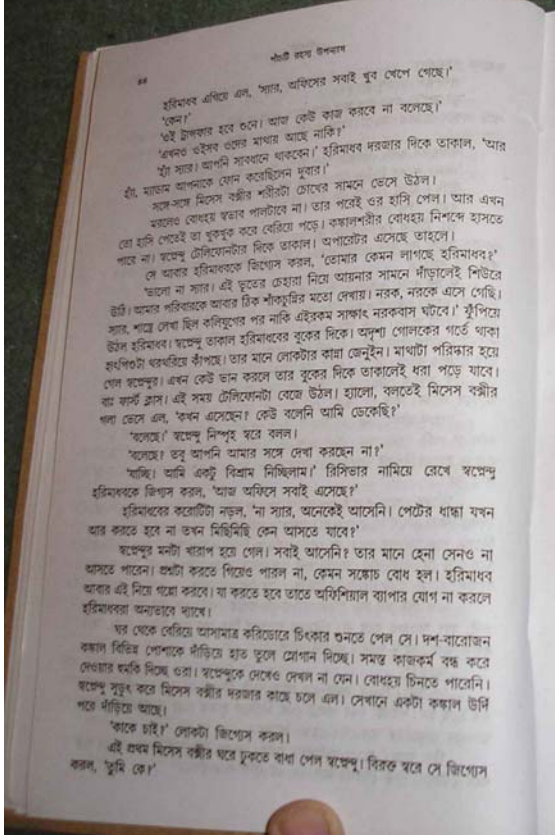 পাঁচটি রহস্য উপন্যাস
৪৪
হরিমাধব এগিয়ে এল, ‘স্যার, অফিসের সবাই খুব খেপে গেছে।’
‘কেন?’
‘ওই ট্রান্সফার হবে শুনে। আজ কেউ কাজ করবে না বলেছে।’
‘এখনও ওইসব ওদের মাথায় আছে নাকি?’
‘হ্যাঁ স্যার। আপনি সাবধানে থাকবেন।’ হরিমাধব দরজার দিকে তাকাল, ‘আর
হ্যাঁ, ম্যাডাম আপনাকে ফোন করেছিলেন দুবার।’
সঙ্গে-সঙ্গে মিসেস বক্সীর শরীরটা চোখের সামনে ভেসে উঠল।
মরলেও বোধহয় স্বভাব পালটাবে না। তার পরেই ওর হাসি পেল। আর এখন
তো হাসি পেতেই তা খুকখুক করে বেরিয়ে পড়ে। কঙ্কালশরীর বোধহয় নিশব্দে হাসতে
পারে না। স্বপ্নেন্দু টেলিফোনটার দিকে তাকাল। অপারেটর এসেছে তাহলে।
সে আবার হরিমাধবকে জিগ্যেস করল, ‘তোমার কেমন লাগছে হরিমাধব?’
‘ভালো না স্যার। এই ভূতের চেহারা নিয়ে আয়নার সামনে দাঁড়ালেই শিউরে
উঠি। আমার পরিবারকে আবার ঠিক শাঁকচুন্নির মতো দেখায়। নরক, নরকে এসে গেছি।
স্যার, শাস্ত্রে লেখা ছিল কলিযুগের পর নাকি এইরকম সাক্ষাৎ নরকবাস ঘটবে।’ ফুঁপিয়ে
উঠল হরিমাধব। স্বপ্নেন্দু তাকাল হরিমাধবের বুকের দিকে। অদৃশ্য গোলকের গর্তে থাকা
হৃৎপিণ্ডটা থরথরিয়ে কাঁপছে। তার মানে লোকটার কান্না জেনুইন। মাথাটা পরিষ্কার হয়ে
গেল স্বপ্নেন্দুর। এখন কেউ ভান করলে তার বুকের দিকে তাকালেই ধরা পড়ে যাবে।
বাঃ ফার্স্ট ক্লাস। এই সময় টেলিফোনটা বেজে উঠল। হ্যালো, বলতেই মিসেস বক্সীর
গলা ভেসে এল, ‘কখন এসেছেন? কেউ বলেনি আমি ডেকেছি?’
‘বলেছে।’ স্বপ্নেন্দু নিস্পৃহ স্বরে বলল।
‘বলেছে? তবু আপনি আমার সঙ্গে দেখা করছেন না?’
‘যাচ্ছি। আমি একটু বিশ্রাম নিচ্ছিলাম।’ রিসিভার নামিয়ে রেখে স্বপ্নেন্দু
হরিমাধবকে জিগ্যেস করল, ‘আজ অফিসে সবাই এসেছে?’
হরিমাধবের করোটিটা নড়ল, ‘না স্যার, অনেকেই আসেনি। পেটের ধান্ধা যখন
আর করতে হবে না তখন মিছিমিছি কেন আসতে যাবে?’
স্বপ্নেন্দুর মনটা খারাপ হয়ে গেল। সবাই আসেনি? তার মানে হেনা সেনও না
আসতে পারেন। প্রশ্নটা করতে গিয়েও পারল না, কেমন সঙ্কোচ বোধ হল। হরিমাধব
আবার এই নিয়ে গপ্পো করবে। যা করতে হবে তাতে অফিশিয়াল ব্যাপার যোগ না করলে
হরিমাধবরা অন্যভাবে দ্যাখে।
ঘর থেকে বেরিয়ে আসামাত্র করিডোরে চিৎকার শুনতে পেল সে। দশ-বারোজন
কঙ্কাল বিভিন্ন পোশাকে দাঁড়িয়ে হাত তুলে স্লোগান দিচ্ছে। সমস্ত কাজকর্ম বন্ধ করে
দেওয়ার হুমকি দিচ্ছে ওরা। স্বপ্নেন্দুকে দেখেও দেখল না যেন। বোধহয় চিনতে পারেনি।
স্বপ্নেন্দু সুড়ুৎ করে মিসেস বক্সীর দরজার কাছে চলে এল। সেখানে একটা কঙ্কাল উর্দি
পরে দাঁড়িয়ে আছে।
‘কাকে চাই?’ লোকটা জিগ্যেস করল।
এই প্রথম মিসেস বক্সীর ঘরে ঢুকতে বাধা পেল স্বপ্নেন্দু। বিরক্ত স্বরে সে জিগ্যেস
করল, ‘তুমি কে?’